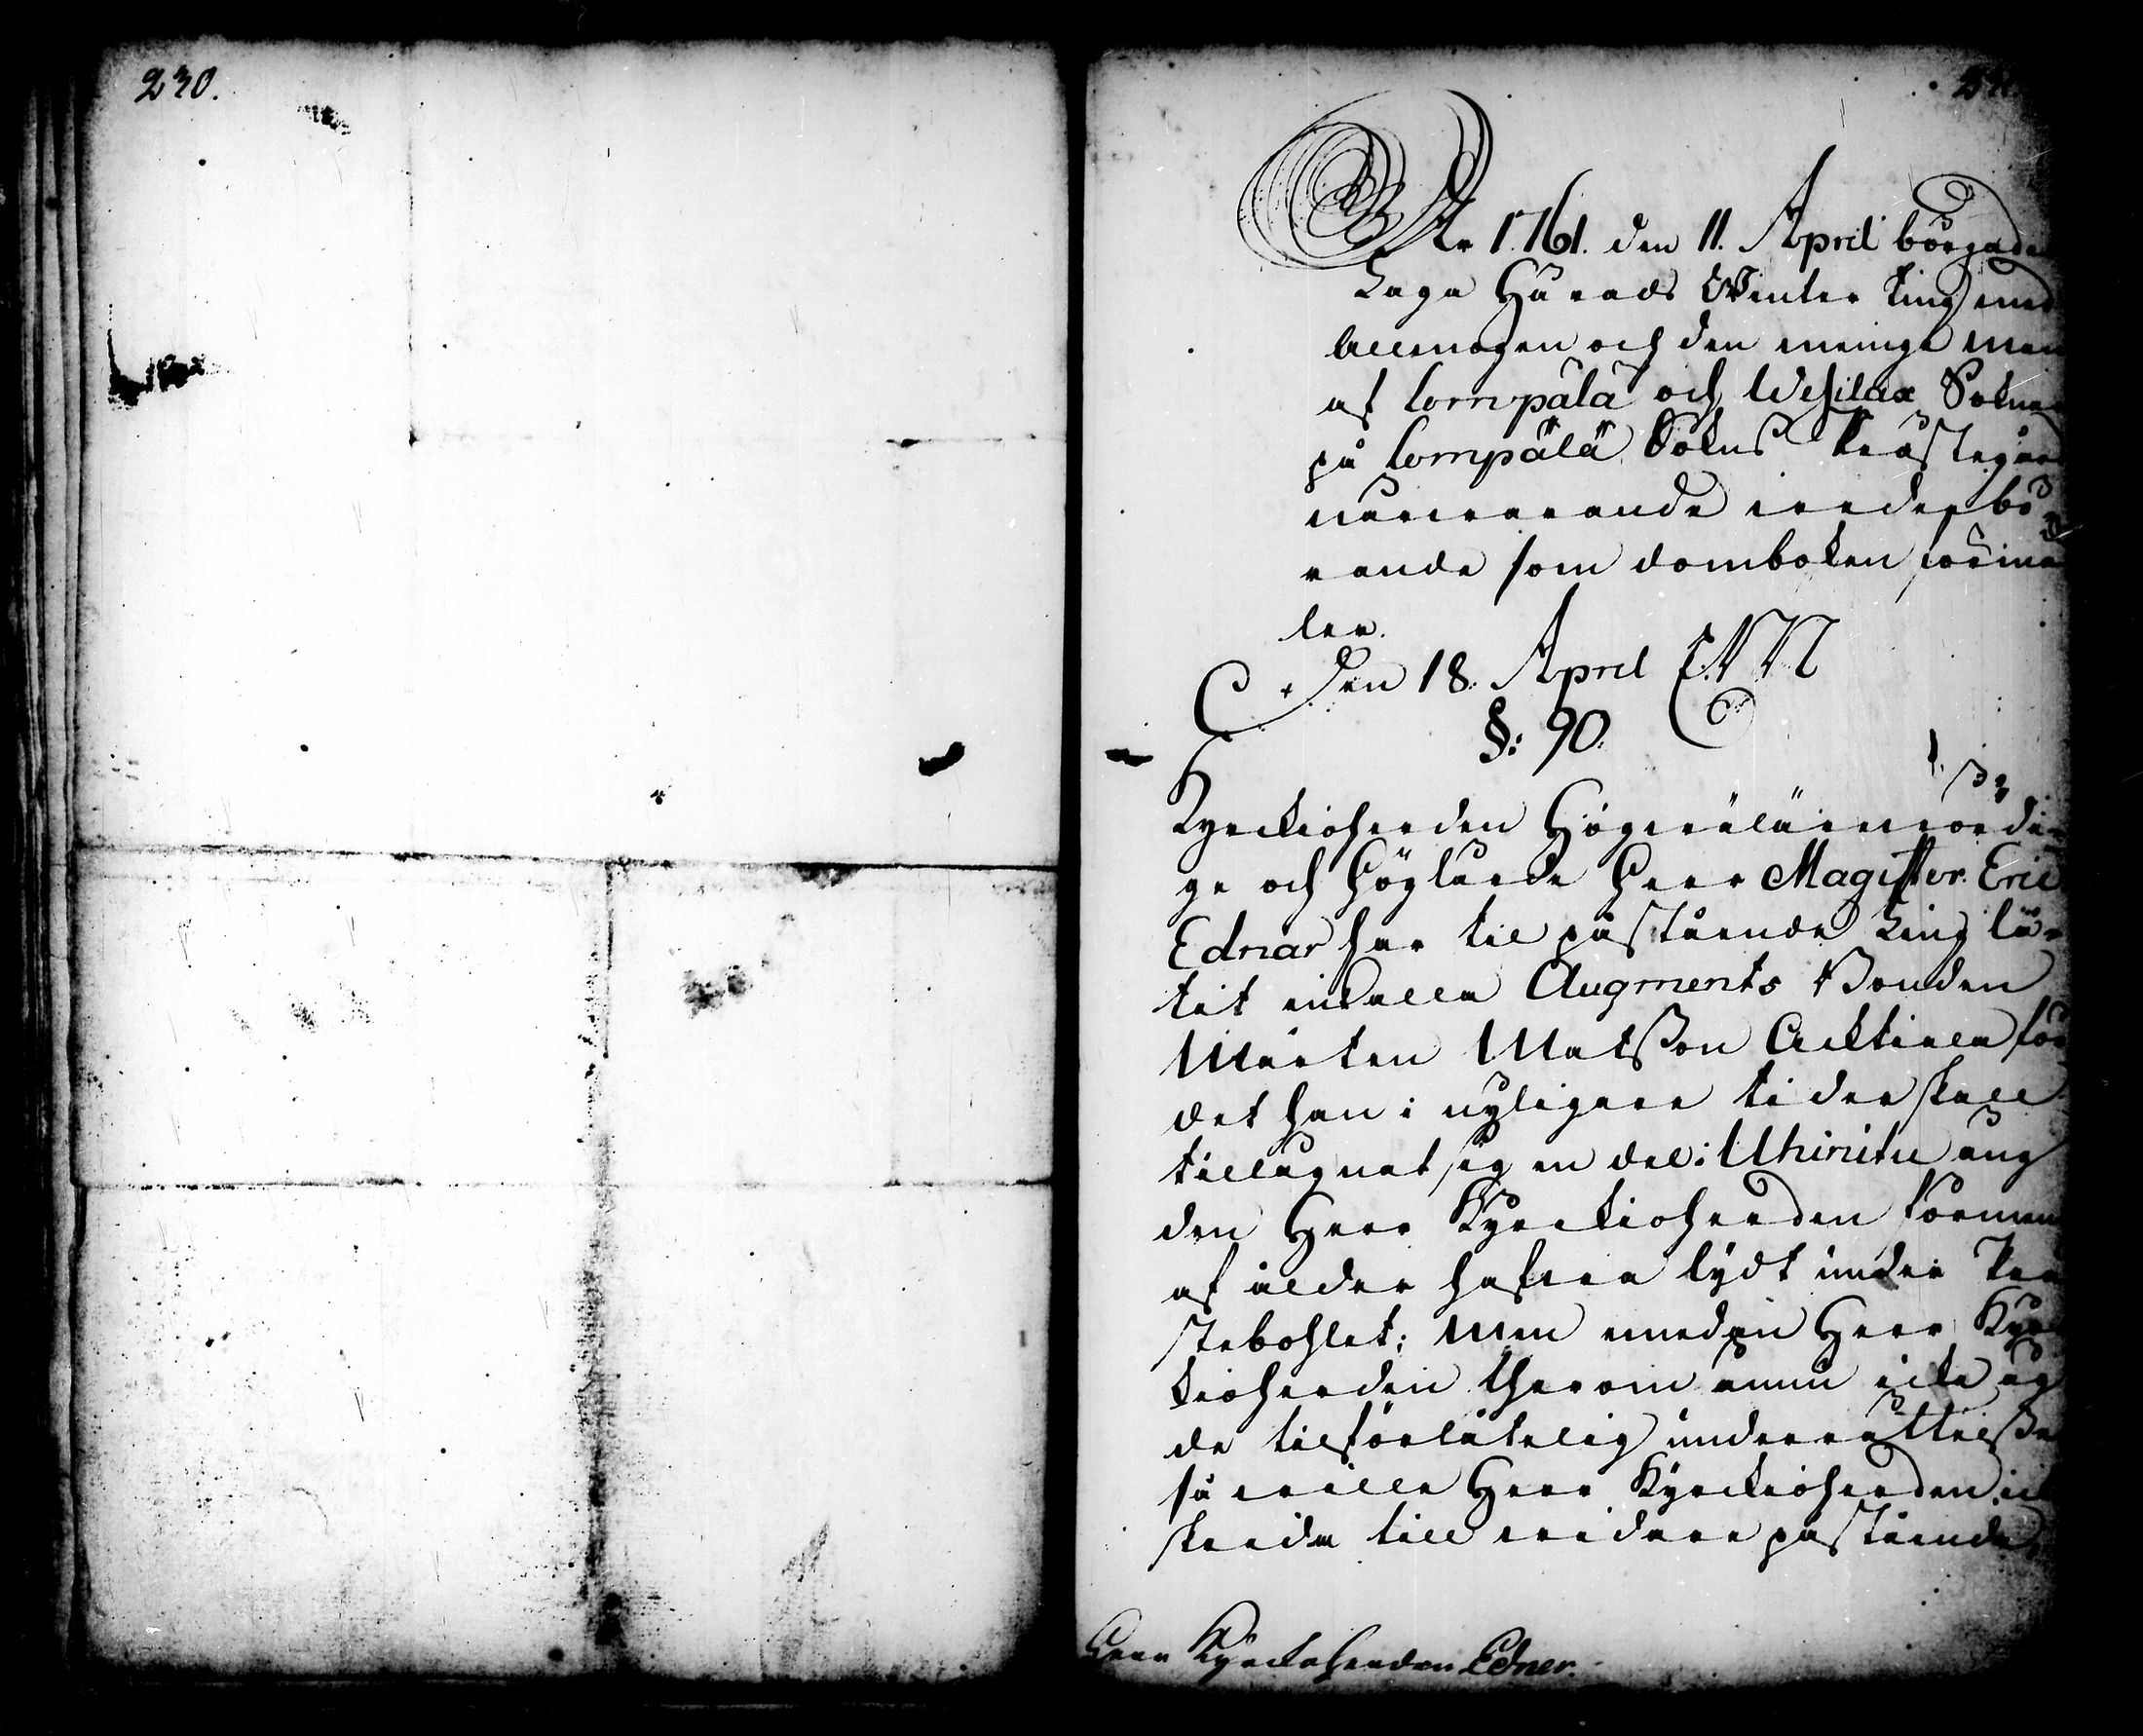 230.
År 1761. den 11. April börjades
Laga Härads Winter ting med
Allmogen och den meinige man
af Lempälä och Wesilax Soknar
på Lempälä Sokns Prästegård
närwarande wederbö-
rande som domboken förmä-
ler.
Den 18. April
§: 90.
Kyrckioherden Högwälärewördi-
ge och Höglärde Herr Magister Eric
Ednar har til påstående ting lå-
tit inkalla Augments Bonden
Mårten Matsson Acktiala för
det han i nyligare tider skall
tillägnat sig en del i Uhinitu äng
den Herr Kyrckioherden förmen
af ålder hafwa lydt under Prä
stebohlet; Men emedan Herr Kyrc
kioherden therom ännu icke äg
de tilförlåtelig underrättelsse
så wille Herr Kyrckioherden ick
skrida till widare påstående,
Herr Kyrckoherden Edner.